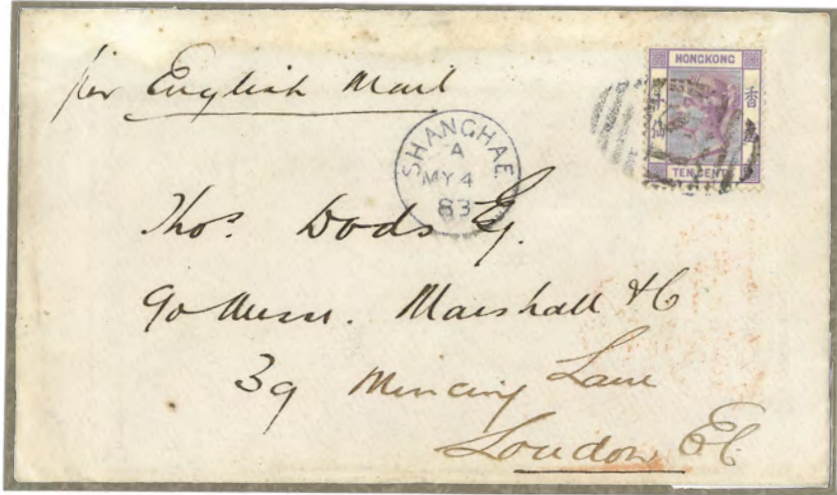 per English Mail
HONGKONG
香
TEN CENTS
SHANGHAE
A
MY 4
83
Thos. Dods Esq.
c/o Messrs. Marshall & Co
39 Mincing Lane
London EC.